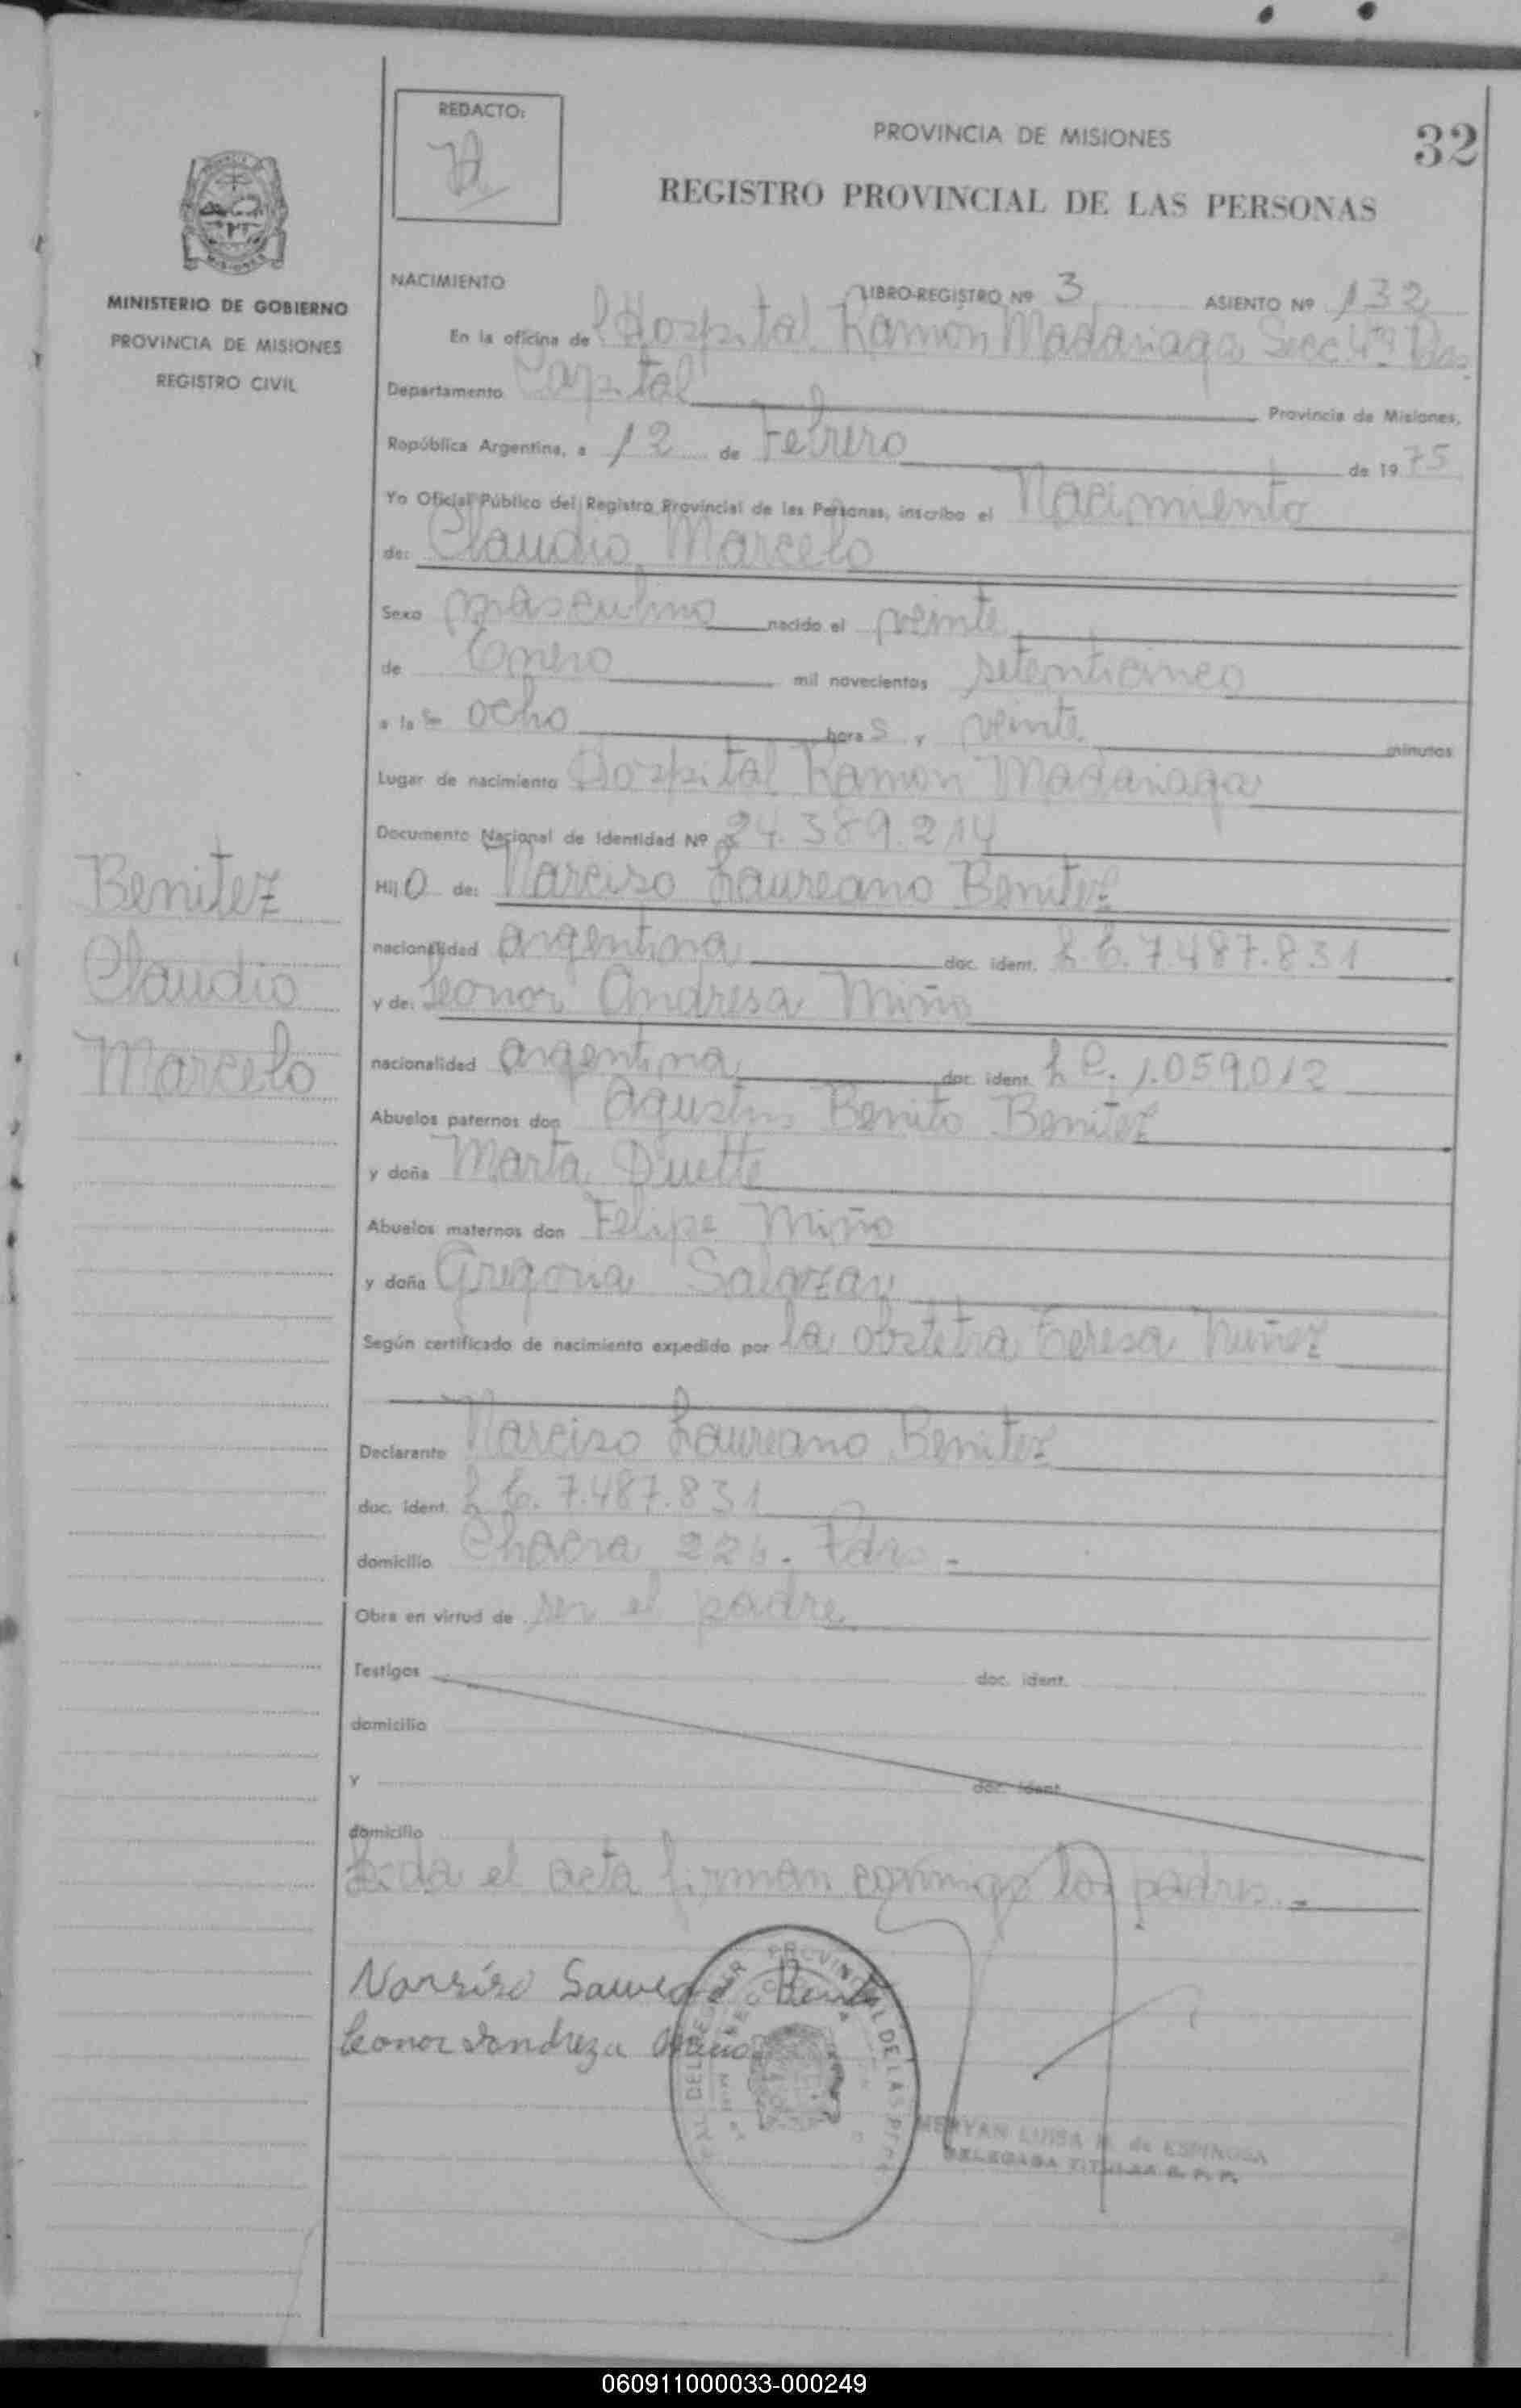 REDACTO:
PROVINCIA DE MISIONES
32
REGISTRO PROVINCIAL DE LAS PERSONAS
MINISTERIO DE GOBIERNO
PROVINCIA DE MISIONES
REGISTRO CIVIL
NACIMIENTO LIBRO-REGISTRO Nº 3 ASIENTO Nº 132
En la oficina del Hospital Ramón Madariaga Secc 4ta Pdas.
Departamento Capital Provincia de Misiones,
República Argentina, a 12 de Febrero de 1975
Yo Oficial Público del Registro Provincial de las Personas, inscribo el Nacimiento
de: Claudio Marcelo
Sexo masculino nacido el veinte
de Enero mil novecientos setenticinco
a las ocho horas y veinte minutos
Lugar de nacimiento Hospital Ramon Madariaga
Documento Nacional de Identidad Nº 24.389.214
Hijo de: Narciso Laureano Benitez
nacionalidad argentina doc. ident. L.E. 7.487.831
y de: Leonor Andresa Miño
nacionalidad argentina doc. ident. L.C. 1.059.012
Abuelos paternos don Agustin Benito Benitez
y doña Marta Duette
Abuelos maternos don Felipe Miño
y doña Gregoria Salazar
Según certificado de nacimiento expedido por la obstetra Teresa Nuñez
Declarante Narciso Laureano Benitez
doc. ident. L.E. 7.487.831
domicilio Chacra 224. Pdas.-
Obra en virtud de ser el padre
Testigos doc. ident.
domicilio
y doc. ident.
domicilio
Leida el acta firman conmigo los padres.-
Benitez
Claudio
Marcelo
Narsiso Laureano Benitez
Leonor Andreza Miño
PROVINCIAL DE LAS
LUISA M. de ESPINOSA
DELEGADA TITULAR R. P. P.
060911000033-000249